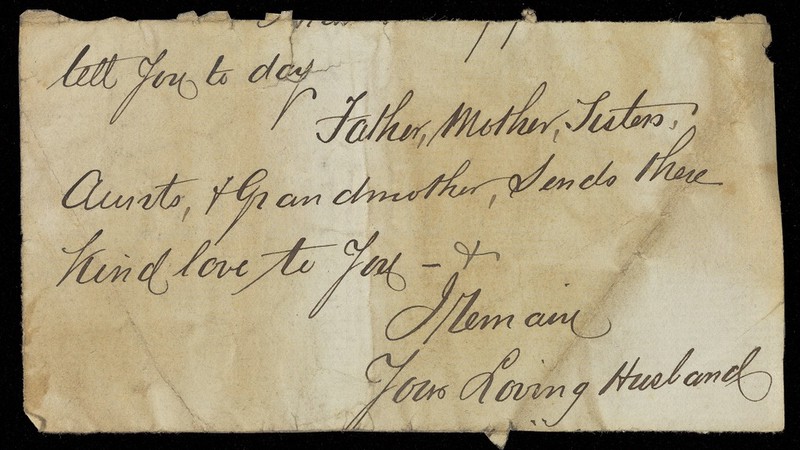 tell You to day
Father, Mother, Sisters,
Aunts, & Grandmother, Sends there
Kind love to You - &
I Remain
Your Loving Husband